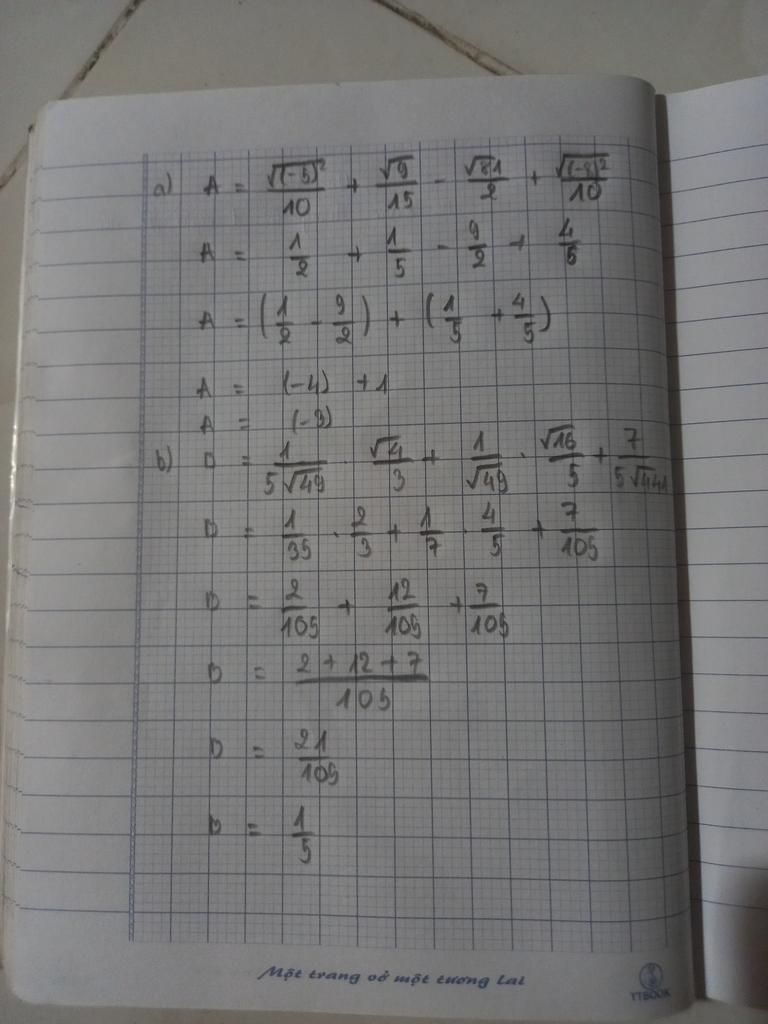 a) A = √(-5)²/10 + √9/15 - √81/2 + √(-8)²/10
A = 1/2 + 1/5 - 9/2 + 4/5
A = (1/2 - 9/2) + (1/5 + 4/5)
A = (-4) + 1
A = (-3)
b) D = 1/5√49 . √4/3 + 1/√49 . √16/5 + 7/5√441
D = 1/35 . 2/3 + 1/7 . 4/5 + 7/105
D = 2/105 + 12/105 + 7/105
D = 2 + 12 + 7/105
D = 21/105
D = 1/5
Một trang vở một tương lai
YTBOOK